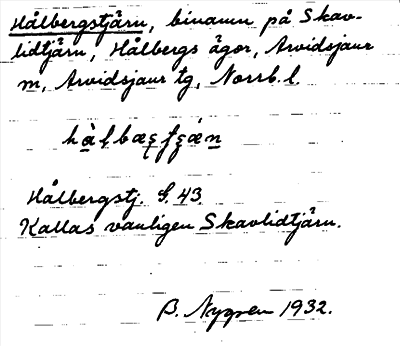 Hålbergstjärn, binamn på Skav-
lidtjärn, Hålbergs ägor, Arvidsjaur
m, Arvidsjaur tg, Norrb. l.
Hålbergstj. S. 43.
Kallas vanligen Skavlidtjärn.
B. Nygren 1932.